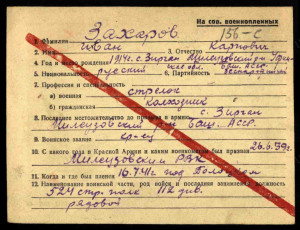 На сов. военнопленных
156-с
1. Фамилия Захаров
2. Имя Иван 3. Отчество Карпович
4. Год и место рождения 1914г. с. Зирган Мелеузовский р.
5. Национальность русский 6. Партийность беспартийный
7. Профессия и специальность:
а) военная стрелок
б) гражданская колхозник
8. Последнее местожительство до призыва в армию с. Зирган
Мелеузовский р-н Баш. АССР.
9. Воинское звание кр-ец
10. С какого года в Красной Армии и каким военкоматом был призван 26.6.39г.
Мелеузовским РВК
11. Когда и где был пленен 16.7.41г. под Полоцком
12. Наименование воинской части, род войск и последняя занимаемая должность
524 стр. полк 112 див.
рядовой